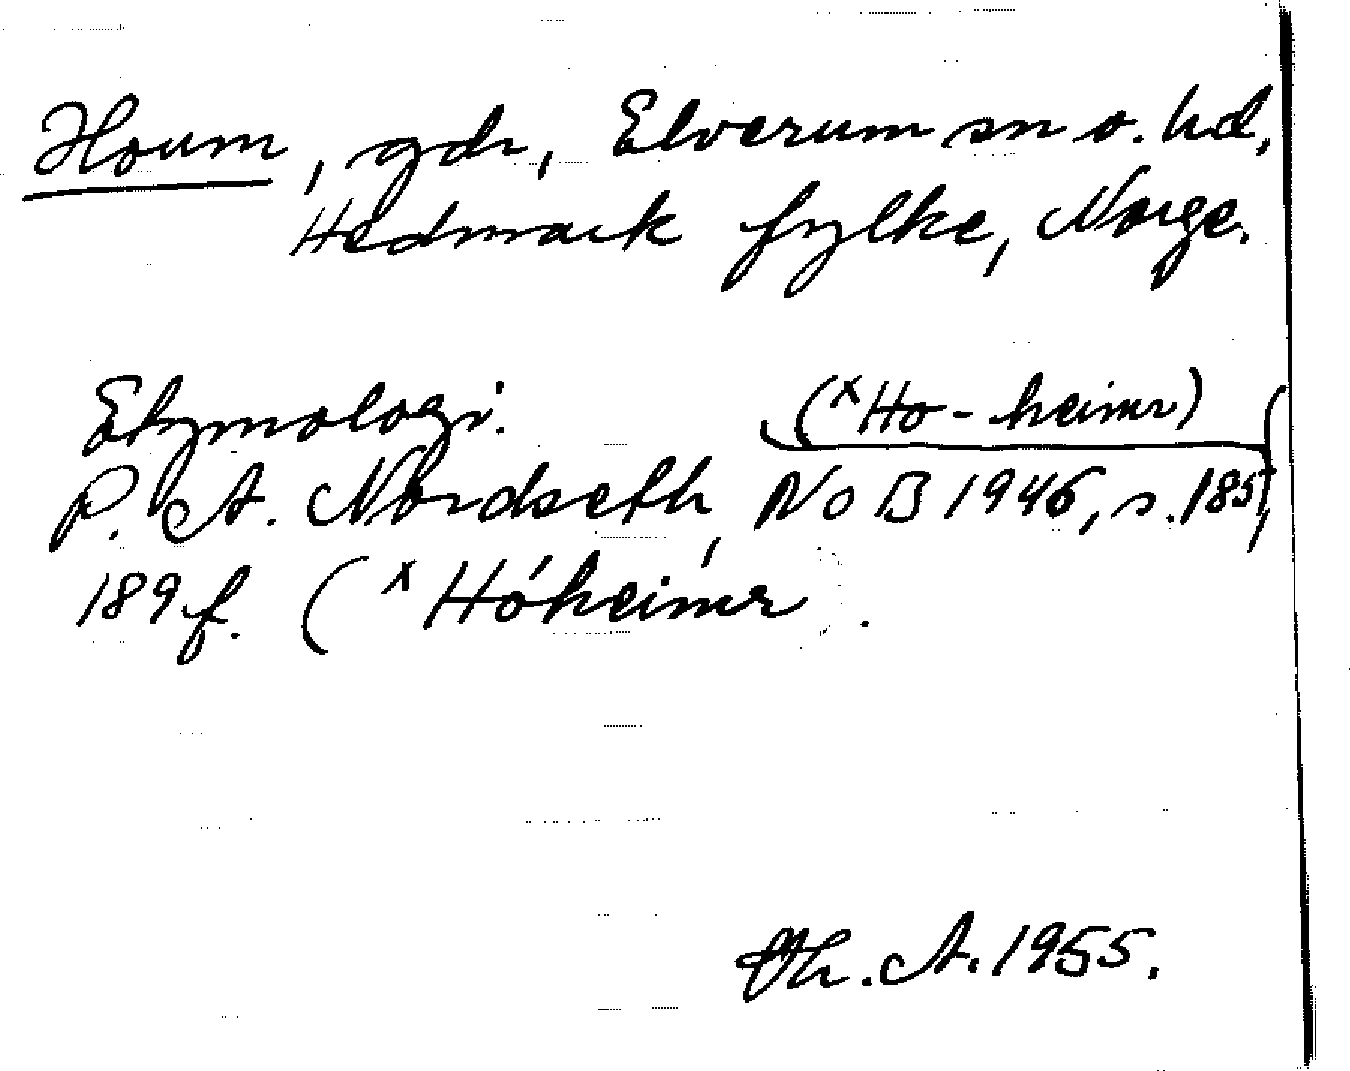 Houm, gdr, Elverum sn o. hd,
Hedmark fylke, Norge.
Etymologi:
(x Ho-heimr)
P. A. Nordseth, NoB 1946, s. 185,
189 f. (x Hóheimr .
Th. A. 1955.